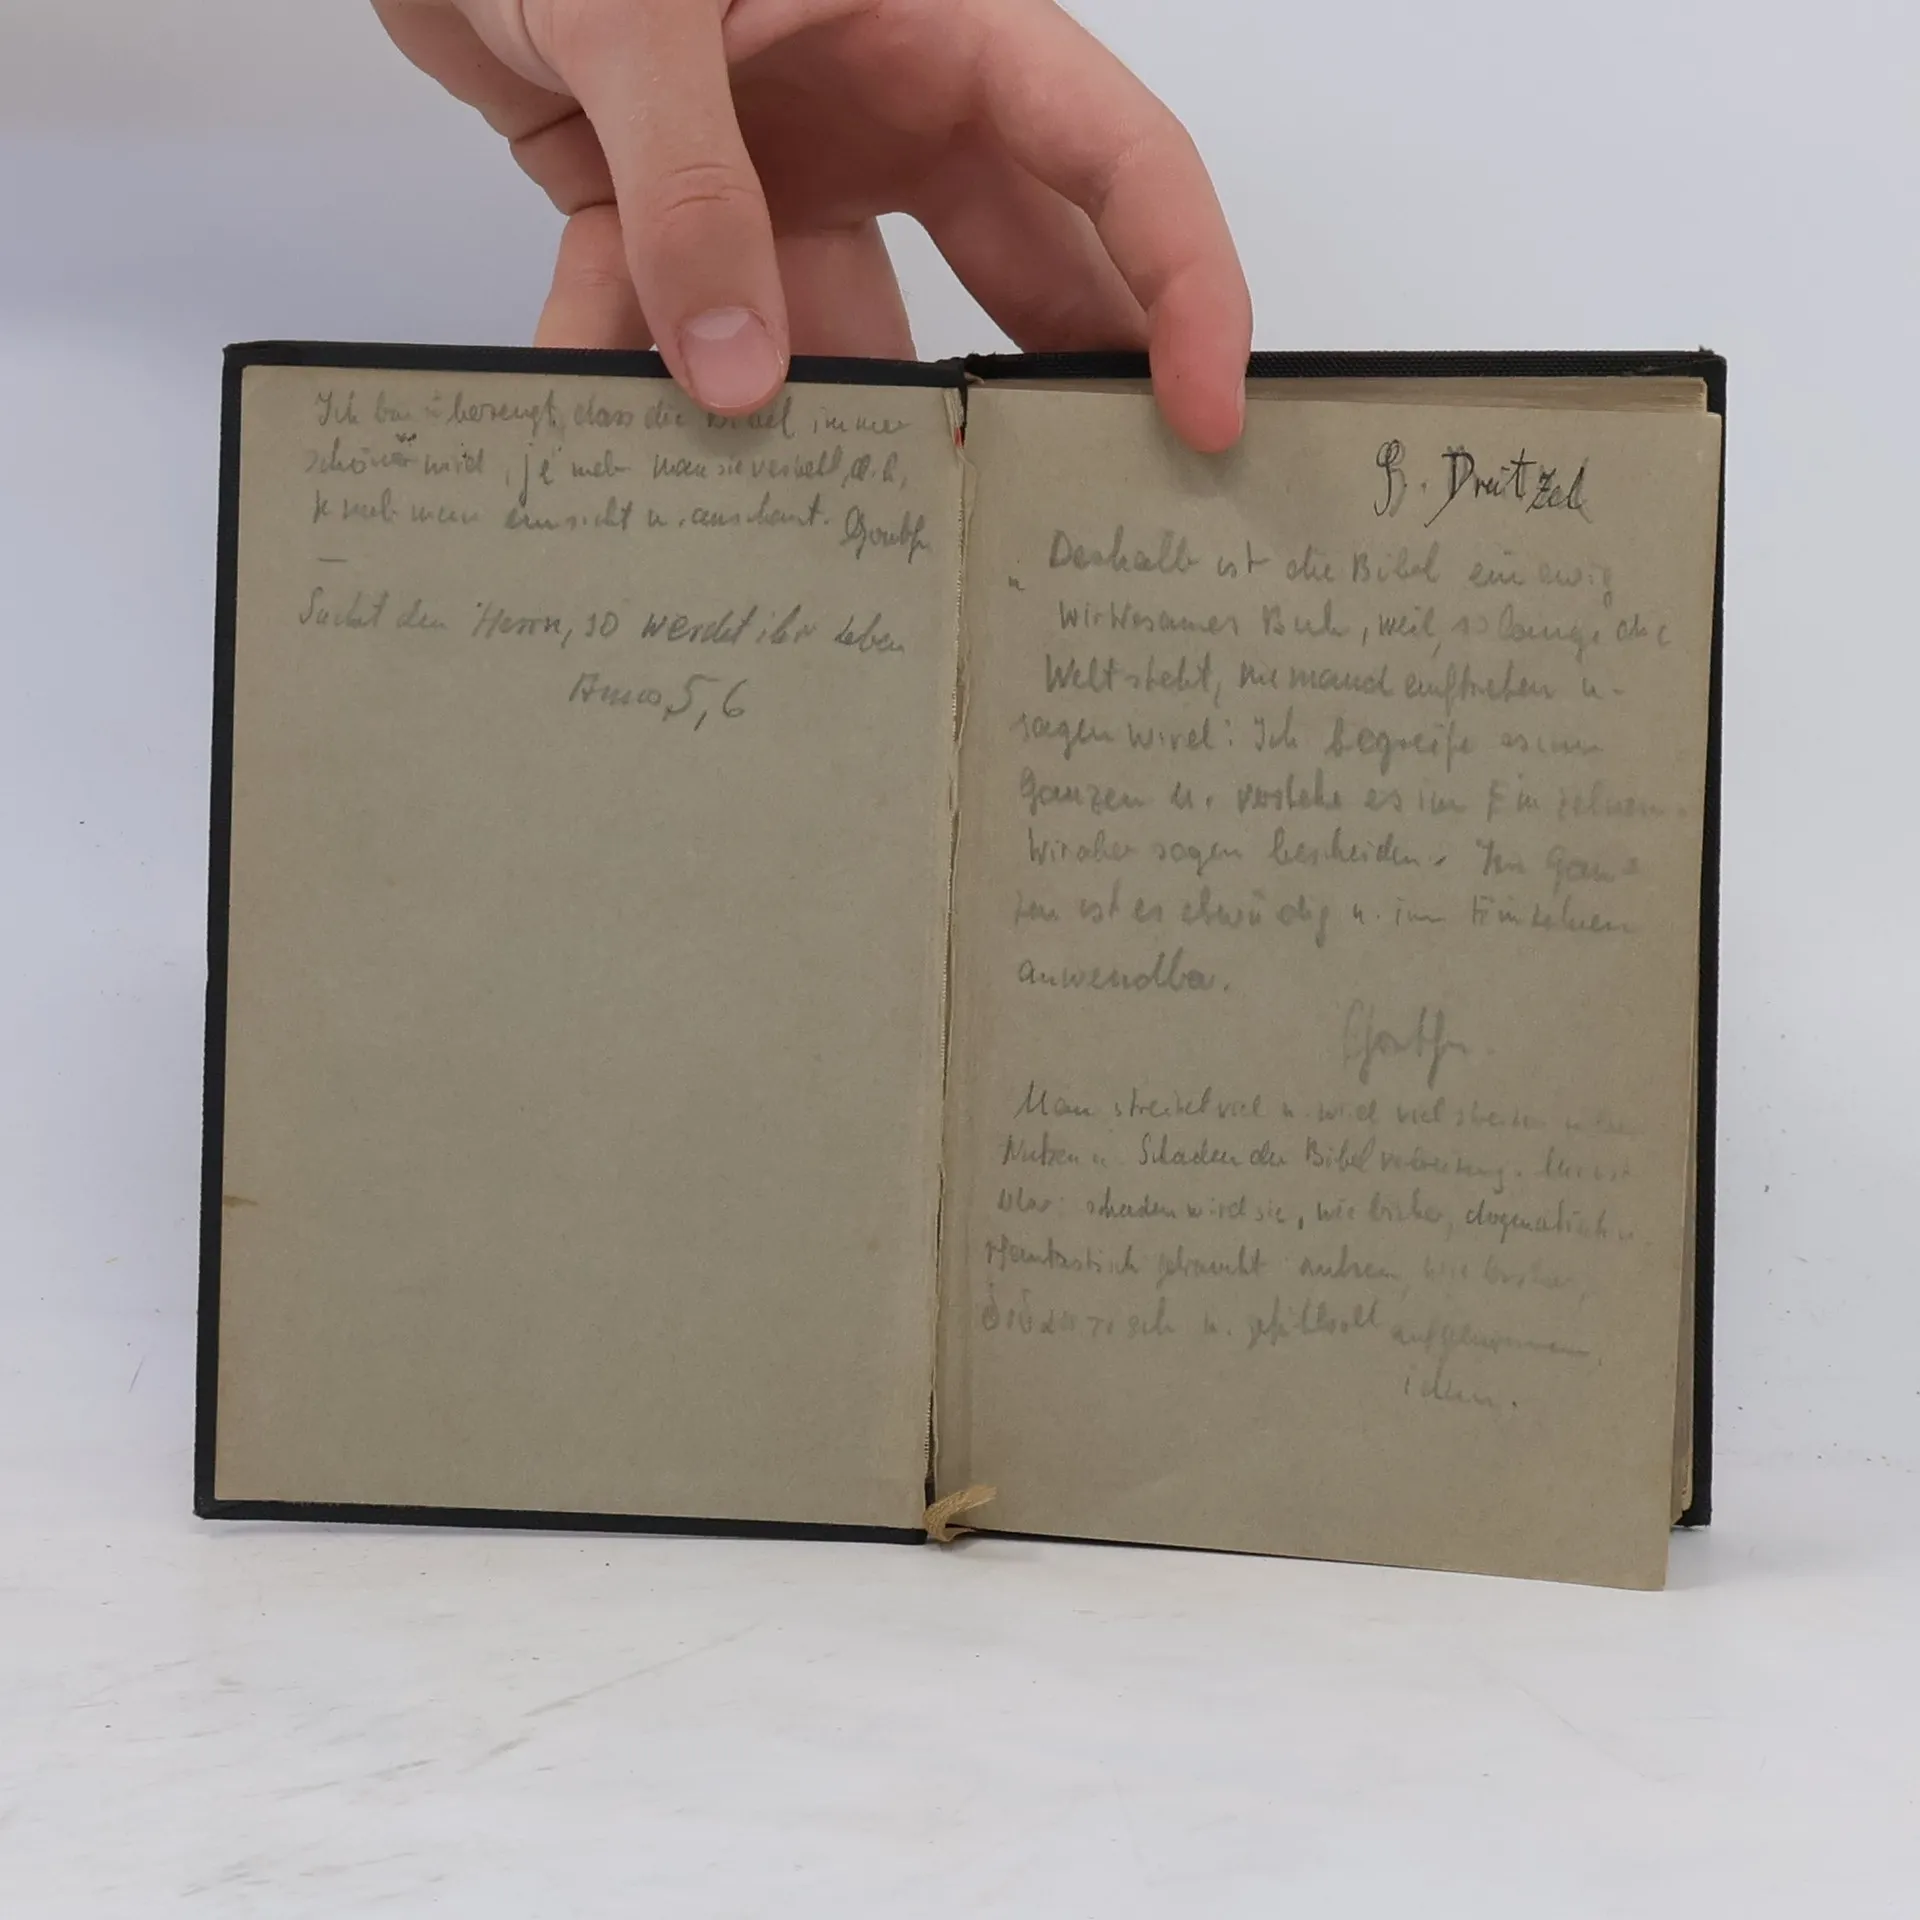 Ich bin überzeugt, dass die Bibel immer
schöner wird, je mehr man sie versteht, d.h,
je mehr man einsieht u. anschaut. Goethe
—
Suchet den Herrn, so werdet ihr leben
Amos, 5, 6
G. Dreitzel
" Deshalb ist die Bibel ein ewig
wirksames Buch, weil, so lange die
Welt steht, niemand auftreten u.
sagen wird: Ich begreife es im
Ganzen u. verstehe es im Einzelnen.
Wir aber sagen bescheiden. Im Gan=
zen ist es ehrwürdig u. im Einzelnen
anwendbar.
Goethe.
Man streitet viel u. wird viel streiten
Nutzen u. Schaden der Bibelverbreitung. Mir ist
klar: schaden wird sie, wie bisher, dogmatisch u.
phantastisch gebraucht nutzen, wie bisher,
didaktisch u. gefühlvoll aufgenommen.
idem.